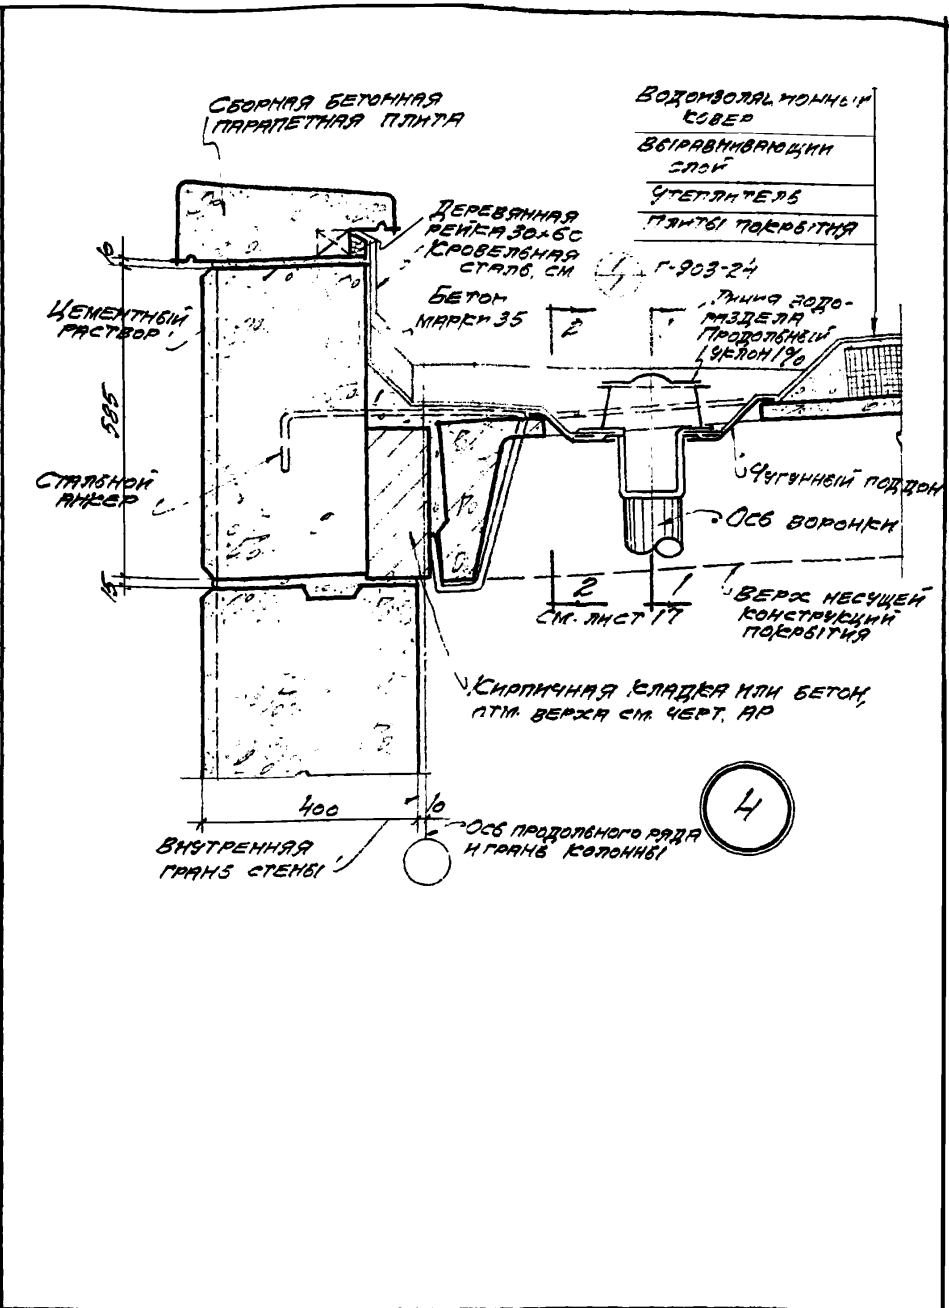 СБОРНАЯ БЕТОННАЯ
ПАРАПЕТНАЯ ПЛИТА
ВОДОИЗОЛЯЦИОННЫЙ
КОВЕР
ВЫРАВНИВАЮЩИЙ
СЛОЙ
УТЕПЛИТЕЛЬ
ПЛИТЫ ПОКРЫТИЯ
ДЕРЕВЯННАЯ
РЕЙКА 30×60
КРОВЕЛЬНАЯ
СТАЛЬ, СМ
Г-903-24
БЕТОН
МАРКИ 35
ЛИНИЯ ВОДО-
РАЗДЕЛА
ПРОДОЛЬНЫЙ
УКЛОН 1%
2
1
ЦЕМЕНТНЫЙ
РАСТВОР
585
15
СТАЛЬНОЙ
АНКЕР
ЧУГУННЫЙ ПОДДОН
ОСЬ ВОРОНКИ
2
1
СМ. ЛИСТ 17
ВЕРХ НЕСУЩЕЙ
КОНСТРУКЦИЙ
ПОКРЫТИЯ
КИРПИЧНАЯ КЛАДКА ИЛИ БЕТОН,
ОТМ. ВЕРХА СМ. ЧЕРТ. АР
400
10
4
ОСЬ ПРОДОЛЬНОГО РЯДА
И ГРАНЬ КОЛОННЫ
ВНУТРЕННЯЯ
ГРАНЬ СТЕНЫ